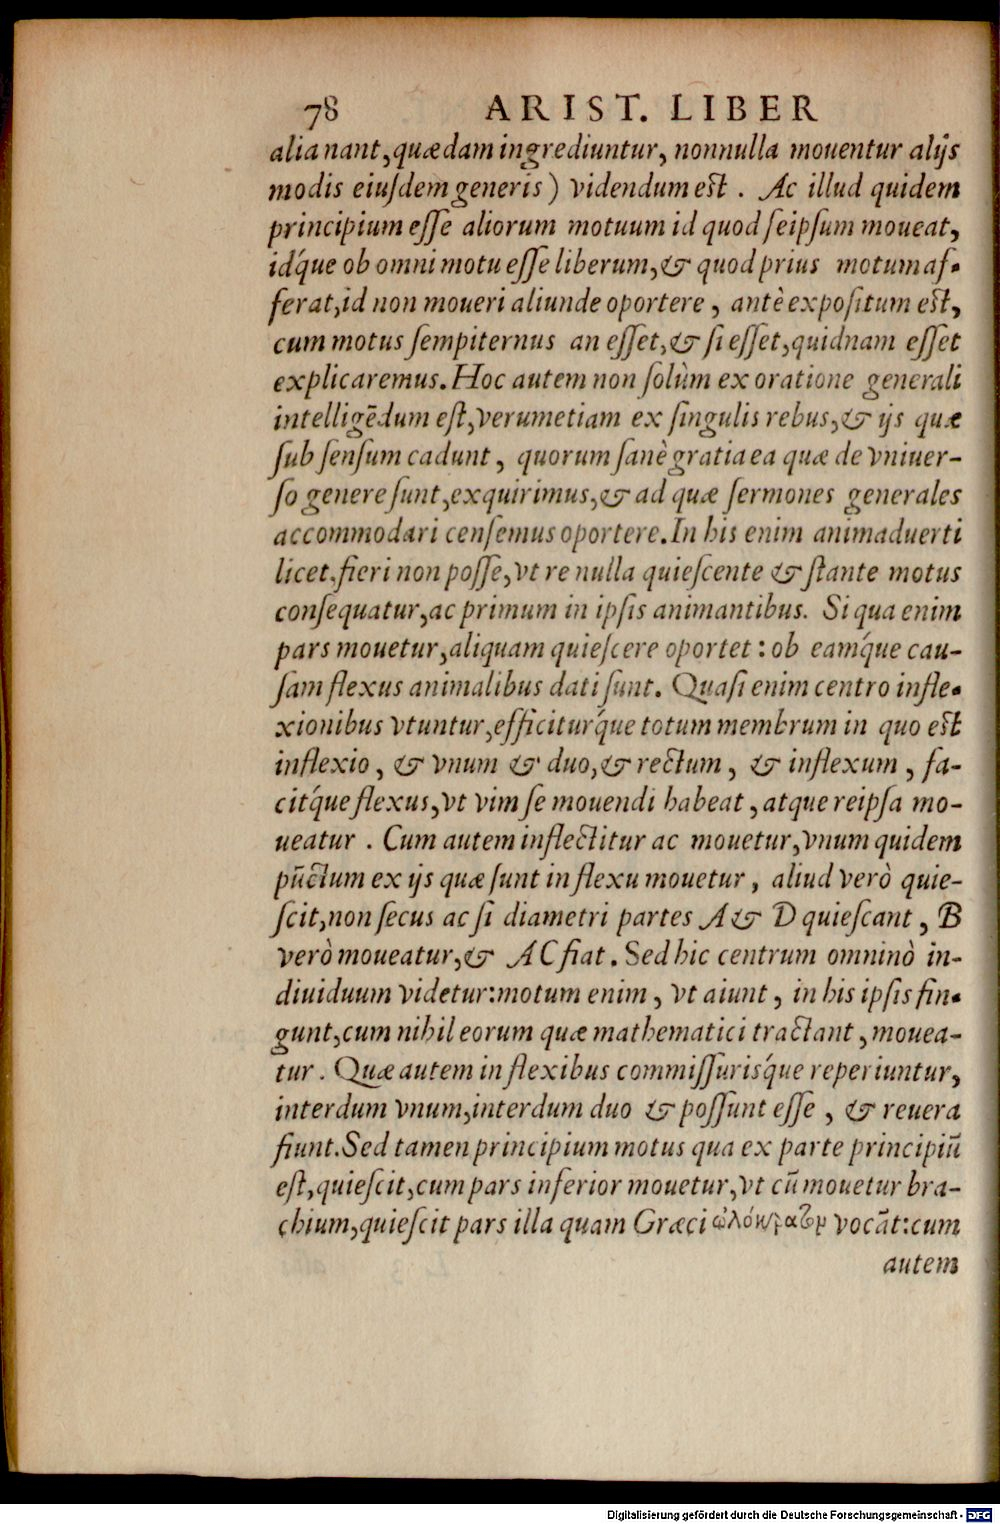 78 ARIST. LIBER
alia nant, quædam ingrediuntur, nonnulla mouentur alijs
modis eiuſdem generis) videndum eſt. Ac illud quidem
principium eſſe aliorum motuum id quod ſeipſum moueat,
idq́ue ob omni motu eſſe liberum, & quod prius motum af-
ferat, id non moueri aliunde oportere, antè expoſitum eſt,
cum motus ſempiternus an eſſet, & ſi eſſet, quidnam eſſet
explicaremus. Hoc autem non ſolùm ex oratione generali
intelligēdum eſt, verumetiam ex ſingulis rebus, & ijs quæ
ſub ſenſum cadunt, quorum ſanè gratia ea quæ de vniuer-
ſo genere ſunt, exquirimus, & ad quæ ſermones generales
accommodari cenſemus oportere. In his enim animaduerti
licet, fieri non poſſe, vt re nulla quieſcente & ſtante motus
conſequatur, ac primum in ipſis animantibus. Si qua enim
pars mouetur, aliquam quieſcere oportet: ob eamq́ue cau-
ſam flexus animalibus dati ſunt. Quaſi enim centro infle-
xionibus vtuntur, efficiturq́ue totum membrum in quo eſt
inflexio, & vnum & duo, & rectum, & inflexum, fa-
citq́ue flexus, vt vim ſe mouendi habeat, atque reipſa mo-
ueatur. Cum autem inflectitur ac mouetur, vnum quidem
pūctum ex ijs quæ ſunt in flexu mouetur, aliud verò quie-
ſcit, non ſecus ac ſi diametri partes A & D quieſcant, B
verò moueatur, & AC fiat. Sed hic centrum omninò in-
diuiduum videtur: motum enim, vt aiunt, in his ipſis fin-
gunt, cum nihil eorum quæ mathematici tractant, mouea-
tur. Quæ autem in flexibus commiſſurisq́ue reperiuntur,
interdum vnum, interdum duo & poſſunt eſſe, & reuera
fiunt. Sed tamen principium motus qua ex parte principiū
eſt, quieſcit, cum pars inferior mouetur, vt cū mouetur bra-
chium, quieſcit pars illa quam Græci vocāt: cum
autem
Digitalisierung gefördert durch die Deutsche Forschungsgemeinschaft - DFG